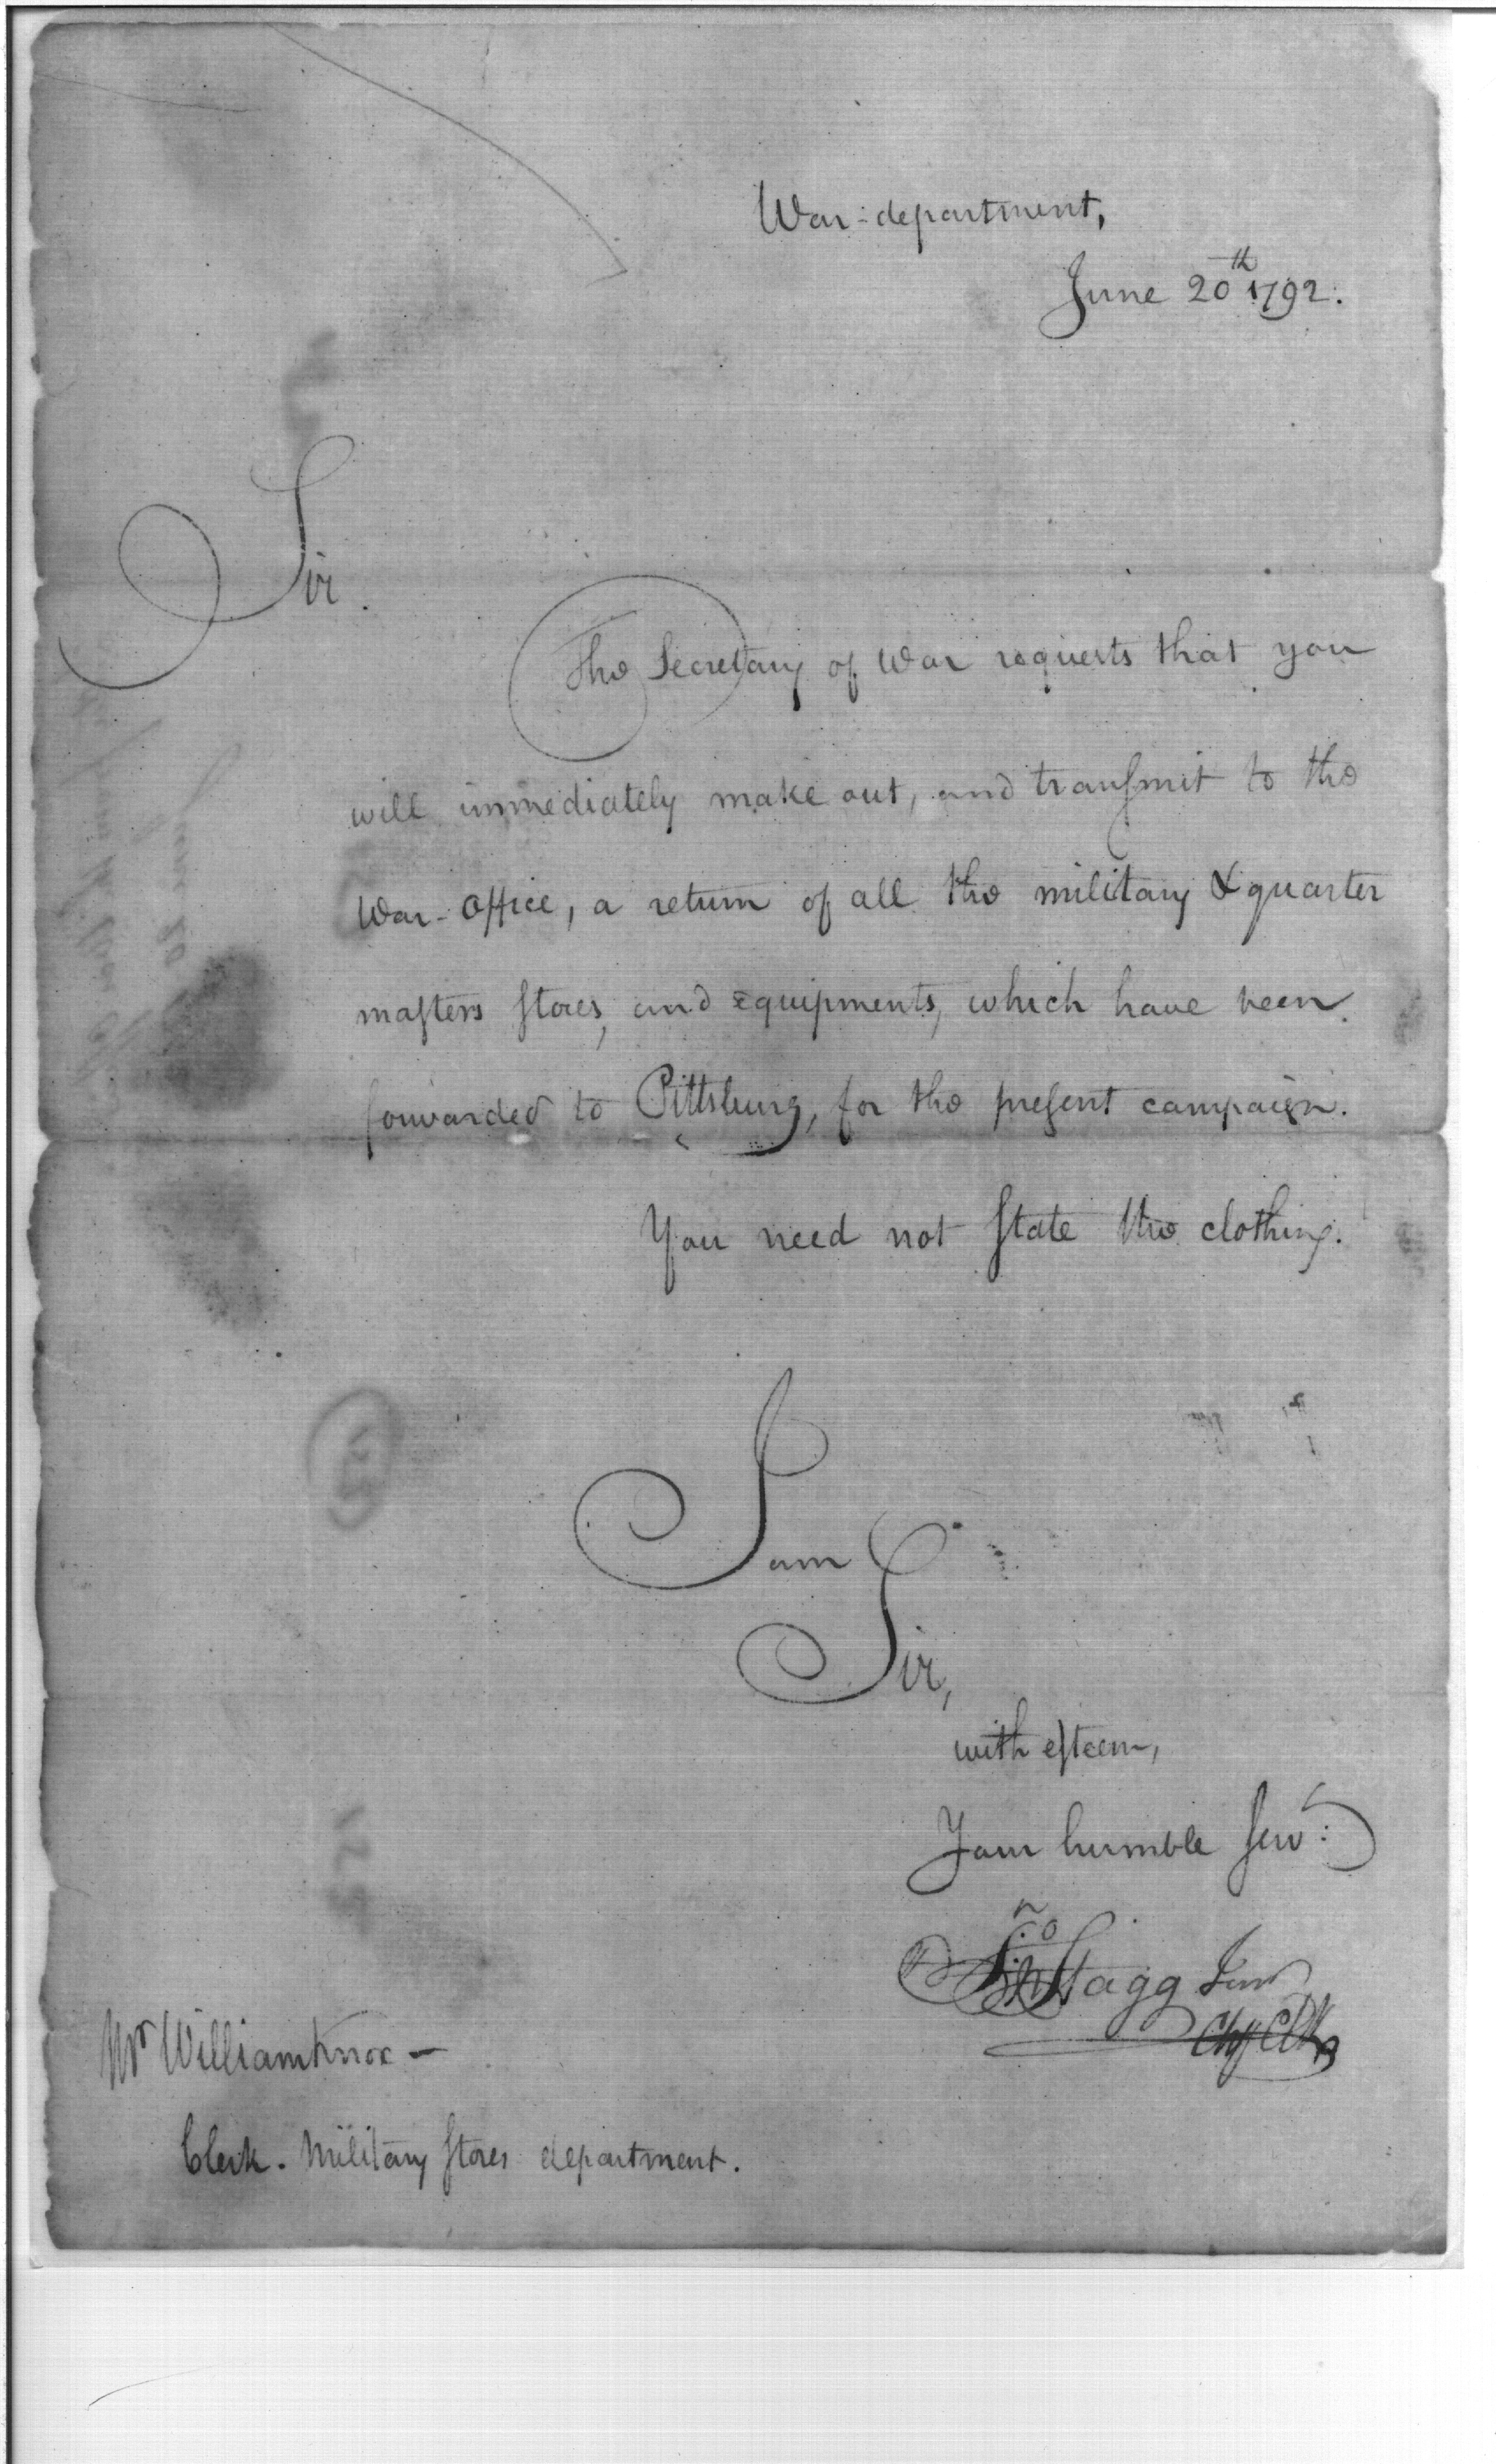 War-department,
June 20th 1792.
Sir.
The Secretary of War requests that you
will immediately make out, and transmit to the
War-Office, a return of all the military & quarter
masters stores, and Equipments, which have been
forwarded to Pittsburg, for the present campaign.
You need not state the clothing.
I am
Sir,
with esteem,
Your humble serv:
Jno Stagg Junr
Chf Clk
Mr William Knox -
Clerk. Military stores department.